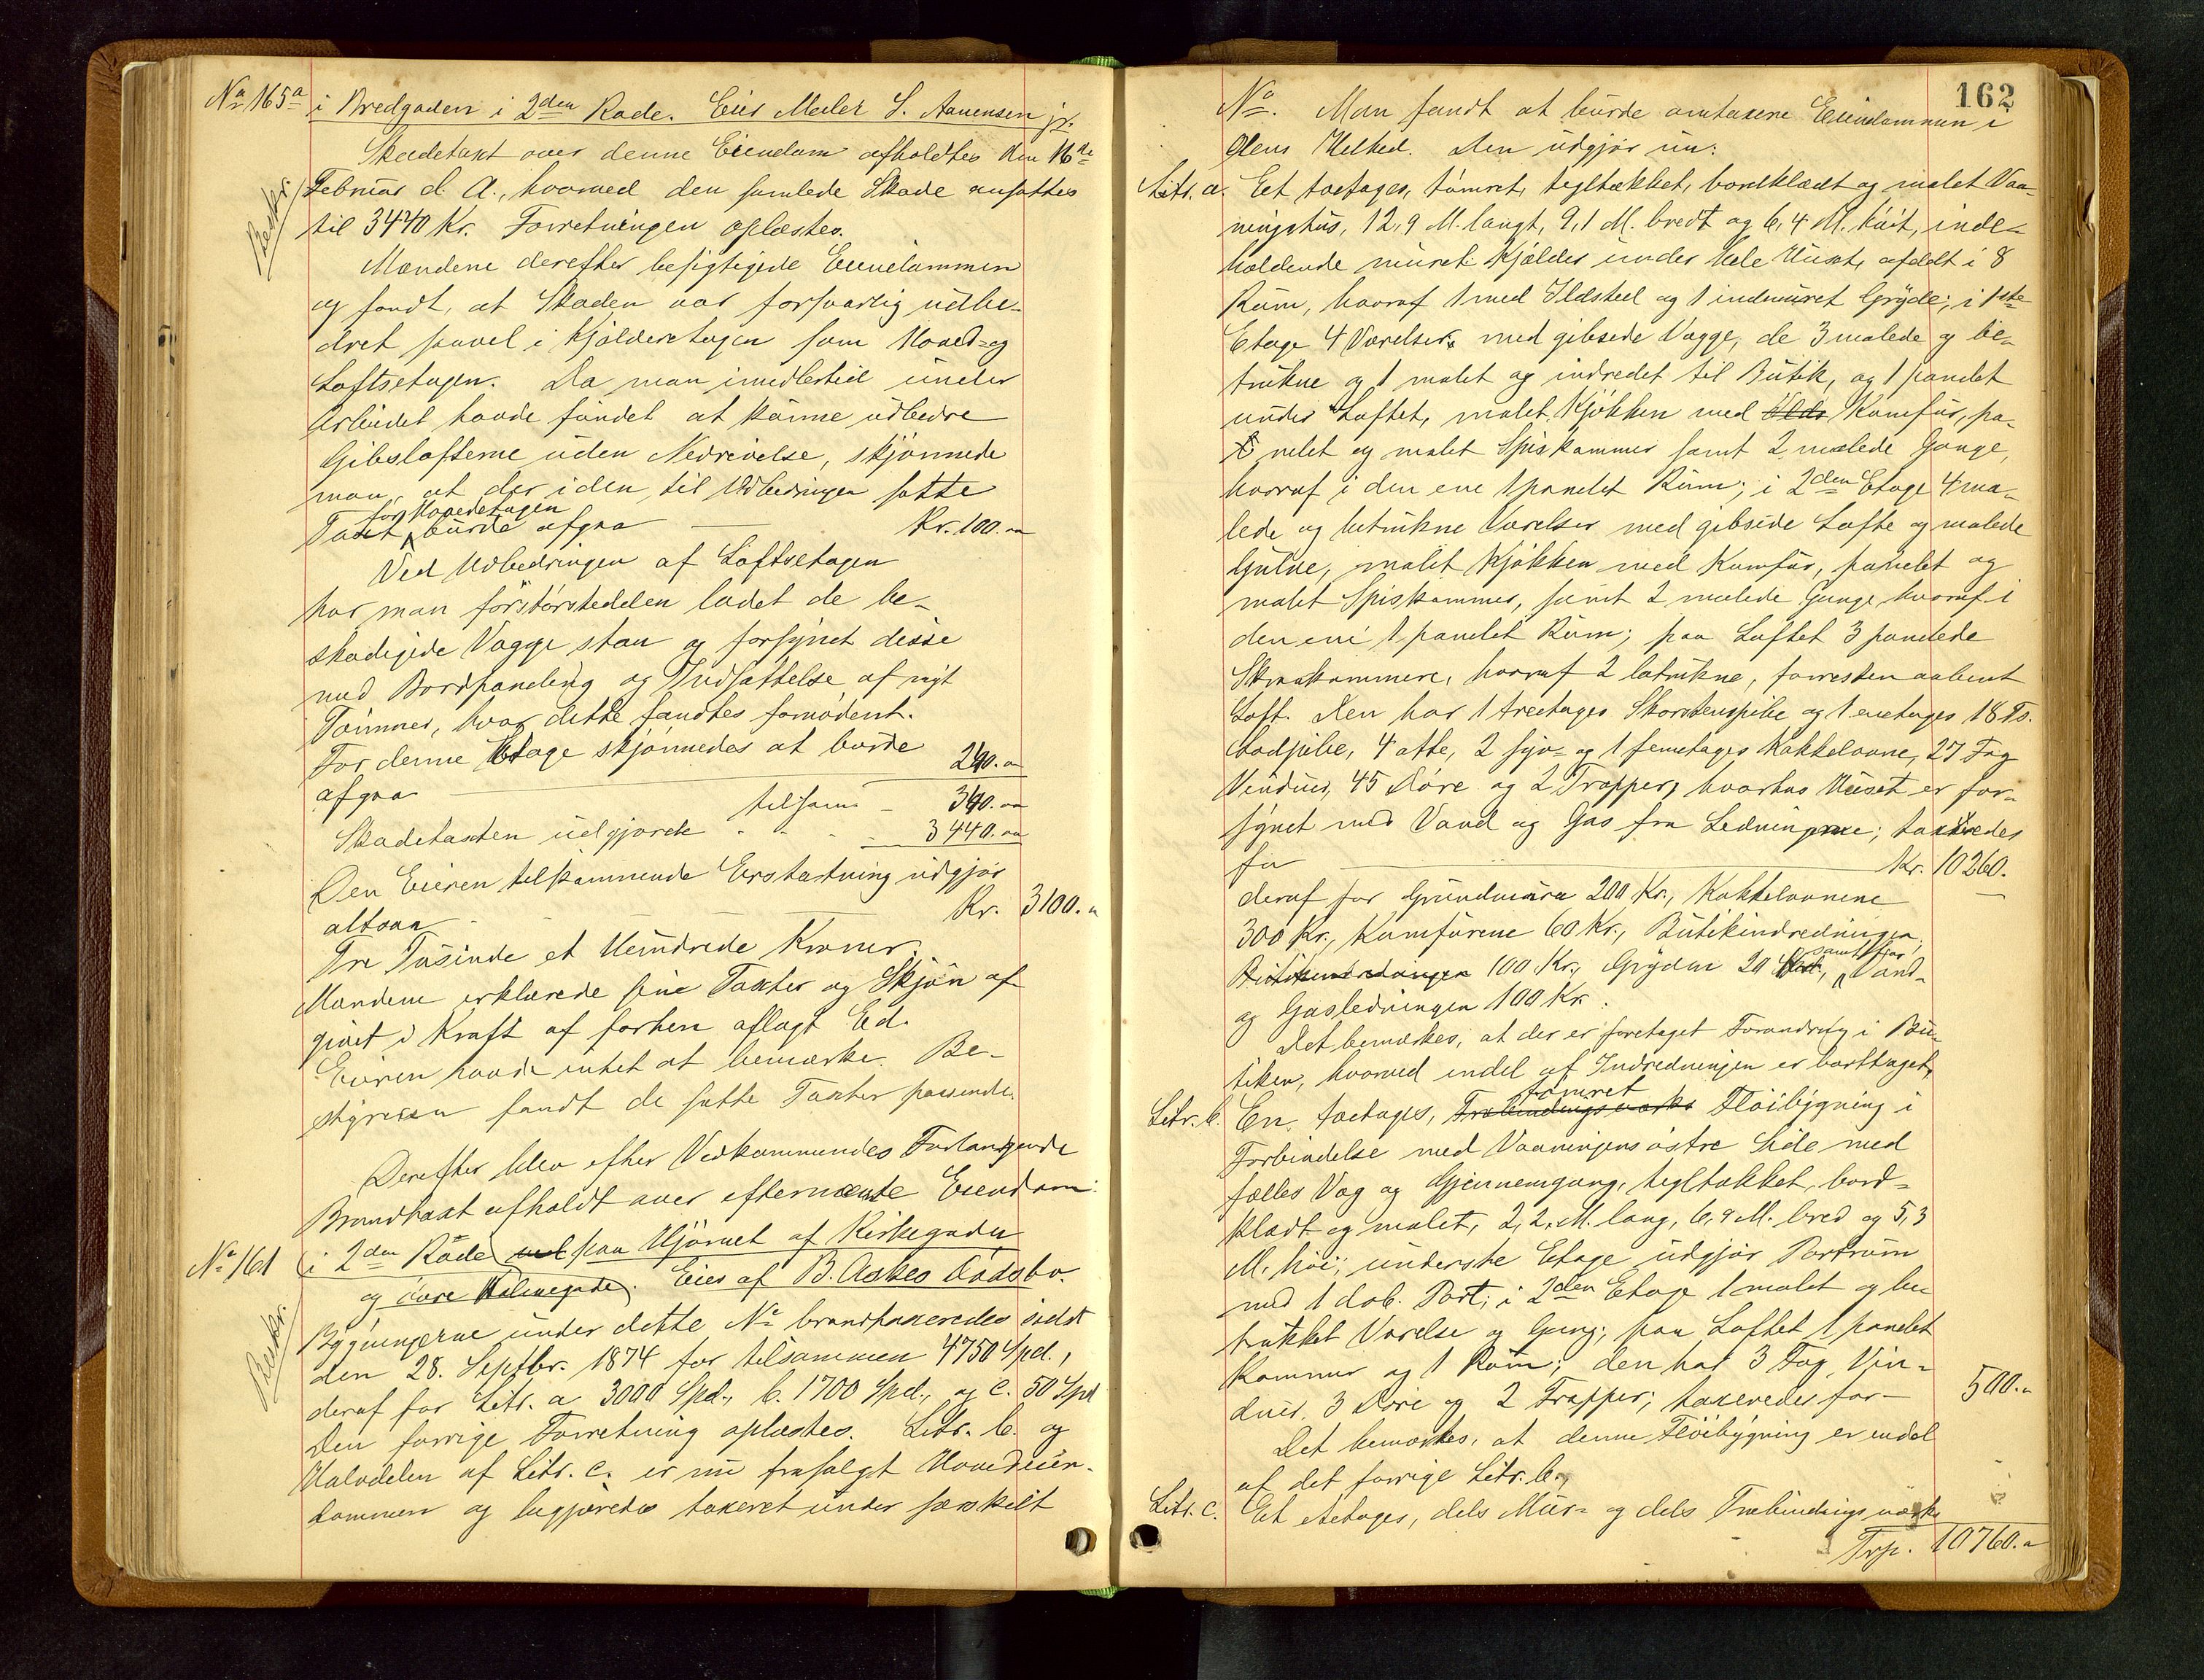 No 165a i Bredgaden i 2den Rode. Eies Maler S. Aanensen jr.
Skadetaxt over denne Eiendom afholdtes den 16de
Bestr.
Februar d. A., hvorved den samlede Skade ansattes
til 3440 Kr. Forretningen oplæstes.
Mændene derefter besigtigede Eiendommen
og fandt, at Skaden var forsvarlig udbe-
dret saavel i Kjælderetagen som Hoved- og
Loftsetagen. Da man imidlertid under
Arbeidet havde fundet at kunne udbedre
Gibslofterne uden Nedrivelse, skjønnede
man, at der i den til Udbedringen satte
for Hovedetagen
Taxt burde afgaa Kr. 100.
Ved Udbedringen af Loftsetagen
har man forstørstedelen ladet de be-
skadigede Vægge staa og forsynet disse
med Bordpaneling og Indsættelse af nyt
Tømmer, hvor dette fandtes fornødent.
For denne Etage skjønnedes at burde
afgaa 240.
tilsam. 340.
Skadetaxten udgjorde 3440.
Den Eieren tilkommende Erstatning udgjør
altsaa Kr. 3100.
Tre Tusinde et Hundrede Kroner.
Mændene erklærede sine Taxter og Skjøn af-
givet i Kraft af forhen aflagt Ed.
Eieren havde intet at bemærke. Be-
styrelsen fandt de satte Taxter passende.
Derefter blev efter Vedkommendes Forlangende
Brandtaxt afholdt over efternævnte Eiendom:
No 161 i 2den Rode ved paa Hjørnet af Kirkegaden
og øvre Holmegade. Eies af B. Askes Dødsbo.
Bestr.
Bygningerne under dette No brandtaxeredes sidst
den 28. Septbr. 1874 for tilsammen 4750 Spd.,
deraf for Litr. a 3000 Spd., b. 1700 Spd., og c. 50 Spd
Den forrige Forretning oplæstes. Litr. b. og
Halvdelen af Litr. c. er nu frasolgt Hovedeien-
dommen og begjæredes taxeret under særskilt
162
No. Man fandt at burde omtaxere Eiendommen i
dens Helhed. Den udgjør nu:
Litr. a. Et toetages, tømret, tegltækket, bordklædt og malet Vaa-
ningshus, 12,9 M. langt, 9,1 M. bredt og 6,4 M. høit, inde-
holdende muret Kjælder under hele Huset, afdelt i 8
Rum, hvoraf 1 med Ildsted og 1 indmuret Gryde; i 1ste
Etage 4 Værelser med gibsede Vægge, de 3 malede og be-
trukne og 1 malet og indredet til Butik, og 1 panelet
under Loftet, malet Kjøkken med Ilds Komfur, pa-
nelet og malet Spiskammer samt 2 malede Gange,
hvoraf i den ene 1 panelet Rum; i 2den Etage 4 ma-
lede og betrukne Værelser med gibsede Lofte og malede
Gulve, malet Kjøkken med Komfur, panelet og
malet Spiskammer, samt 2 malede Gange hvoraf i
den ene 1 panelet Rum; paa Loftet 3 panelede
Skraakammere, hvoraf 2 betrukne, forresten aabent
Loft. Den har 1 treetages Skorstenspibe og 1 enetages 18 Ts.
Sodpibe, 4 otte, 2 syv- og 1 femetages Kakkelovne, 27 Fag
Vinduer, 45 Døre og 2 Trapper, hvorhos Huset er for-
synet med Vand og Gas fra Ledningerne; taxeredes
for Kr. 10260.
deraf for Grundmure 200 Kr., Kakkelovnene
300 Kr., Komfurene 60 Kr., Butikindredningen
Butikindredningen 100 Kr., Gryden 20 Kr., samt for Vand-
og Gasledningen 100 Kr.
Det bemærkes, at der er foretaget Forandring i Bu-
tiken, hvorved endel af Indredningen er borttaget.
tømret
Litr. b. En toetages, Træbindingsværks Fløibygning i
Forbindelse med Vaaningens østre Side med
fælles Væg og Gjennemgang, tegltækket, bord-
klædt og malet, 2,2 M. lang, 6,9 M. bred og 5,3
M. høi; underste Etage udgjør Portrum
med 1 dob. Port; i 2den Etage 1 malet og be-
trukket Værelse og Gang; paa Loftet 1 panelet
Kammer og 1 Rum; den har 3 Fag Vin-
duer, 3 Døre og 2 Trapper; taxeredes for 500.
Det bemærkes, at denne Fløibygning er endel
af det forrige Litr. b.
Litr. c. Et etetages, dels Mur- og dels Træbindingsværks
Trp. 10760.